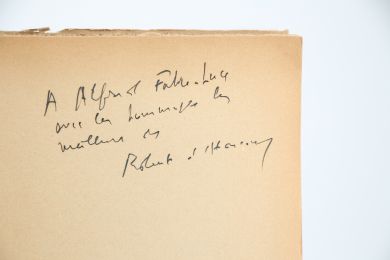 A Alfred Fabre-Luce
avec les hommages les
meilleurs de
Robert d'Harcourt